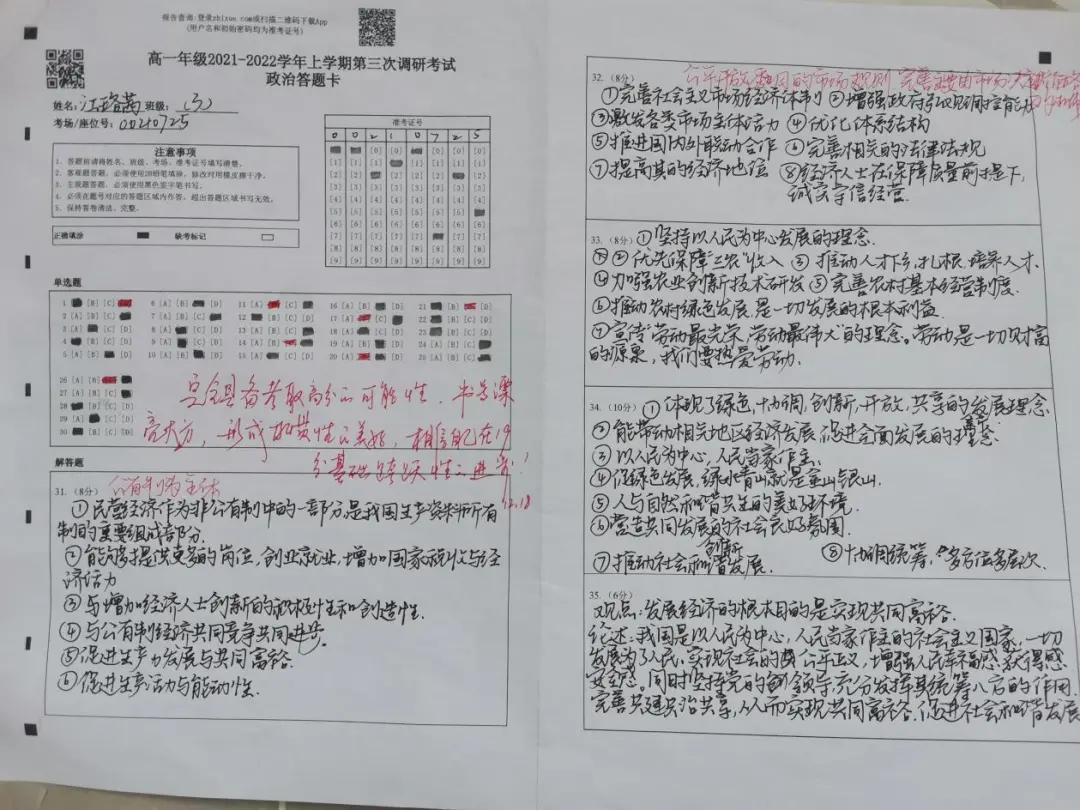 报告查询:登录zhixue.com或扫描二维码下载App
(用户名和初始密码均为准考证号)
高一年级2021-2022学年上学期第三次调研考试
政治答题卡
姓名: 班级:
考场/座位号: 00210725
准考证号
0 0 2 1 0 7 2 5
注意事项
1. 答题前请将姓名、班级、考场、准考证号填写清楚。
2. 客观题答题,必须使用2B铅笔填涂,修改时用橡皮擦干净。
3. 主观题答题,必须使用黑色签字笔书写。
4. 必须在题号对应的答题区域内作答,超出答题区域书写无效。
5. 保持答卷清洁、完整。
正确填涂 缺考标记
单选题
是全县备考取高分的可能性.书写漂
亮大方,形成 美好,相信自己在
分基础 进步!
12.18
解答题
公有制为主体
31. (8分)
①民营经济作为非公有制中的一部分,是我国生产资料所有
制的重要组成部分.
②能够提供更多的岗位,创业就业,增加国家税收与经
济活力
③与增加经济人士创新的积极性和创造性.
④与公有制经济共同竞争共同进步.
⑤促进生产力发展与共同富裕.
⑥促进生产活力与能动性.
32. (8分) 公平开放 的市场规则 完善主要由市场
①完善社会主义市场经济体制 ②增强政府引领调控能力
③激发各类市场主体活力 ④优化体系结构
⑤推进国内外联动合作 ⑥完善相关的法律法规
⑦提高其的经济地位 ⑧经济人士在保障质量前提下,
诚实守信经营.
33. (8分) ①坚持以人民为中心发展的理念.
②优先保障"三农"收入 ③推动人才下乡,扎根,培养人才.
④加强农业创新技术研发 ⑤完善农村基本经营制度.
⑥推动农村绿色发展,是一切发展的根本利益.
⑦宣传"劳动最光荣,劳动最伟大"的理念。劳动是一切财富
的源泉,我们要热爱劳动.
34. (10分) ①体现了绿色,协调,创新,开放,共享的发展理念.
②能带动相关地区经济发展,促进全面发展的理念
③以人民为中心,人民当家作主.
④促绿色发展,绿水青山就是金山银山.
⑤人与自然和谐共生的美好环境.
⑥营造共同发展的社会良好氛围.
⑦推动社会和谐创新发展. ⑧协调统筹,多方位多层次.
35. (6分)
观点:发展经济的根本目的是实现共同富裕.
论述:我国是以人民为中心,人民当家作主的社会主义国家.一切
发展为了人民,实现社会的公平正义,增强人民幸福感,获得感
安全感。同时坚持党的领导,充分发挥其统筹八方的作用.
完善共建共治共享,从而实现共同富裕.促进社会和谐发展